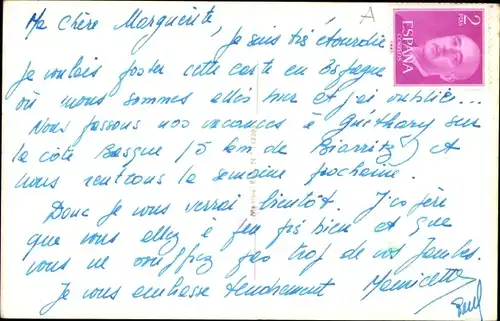 Ma Chère Marguerite,
je suis très étourdie
je voulais poster cette carte en Espagne
où nous sommes allés hier et j'ai oublié...
Nous passons nos vacances à Guéthary sur
la côte Basque (5 km de Biarritz) et
nous rentrons la semaine prochaine.
Donc je vous verrai bientôt. J'espère
que vous allez à peu près bien et que
vous ne souffrez pas trop de vos jambes.
Je vous embrasse tendrement
2 PTAS
ESPAÑA
CORREOS